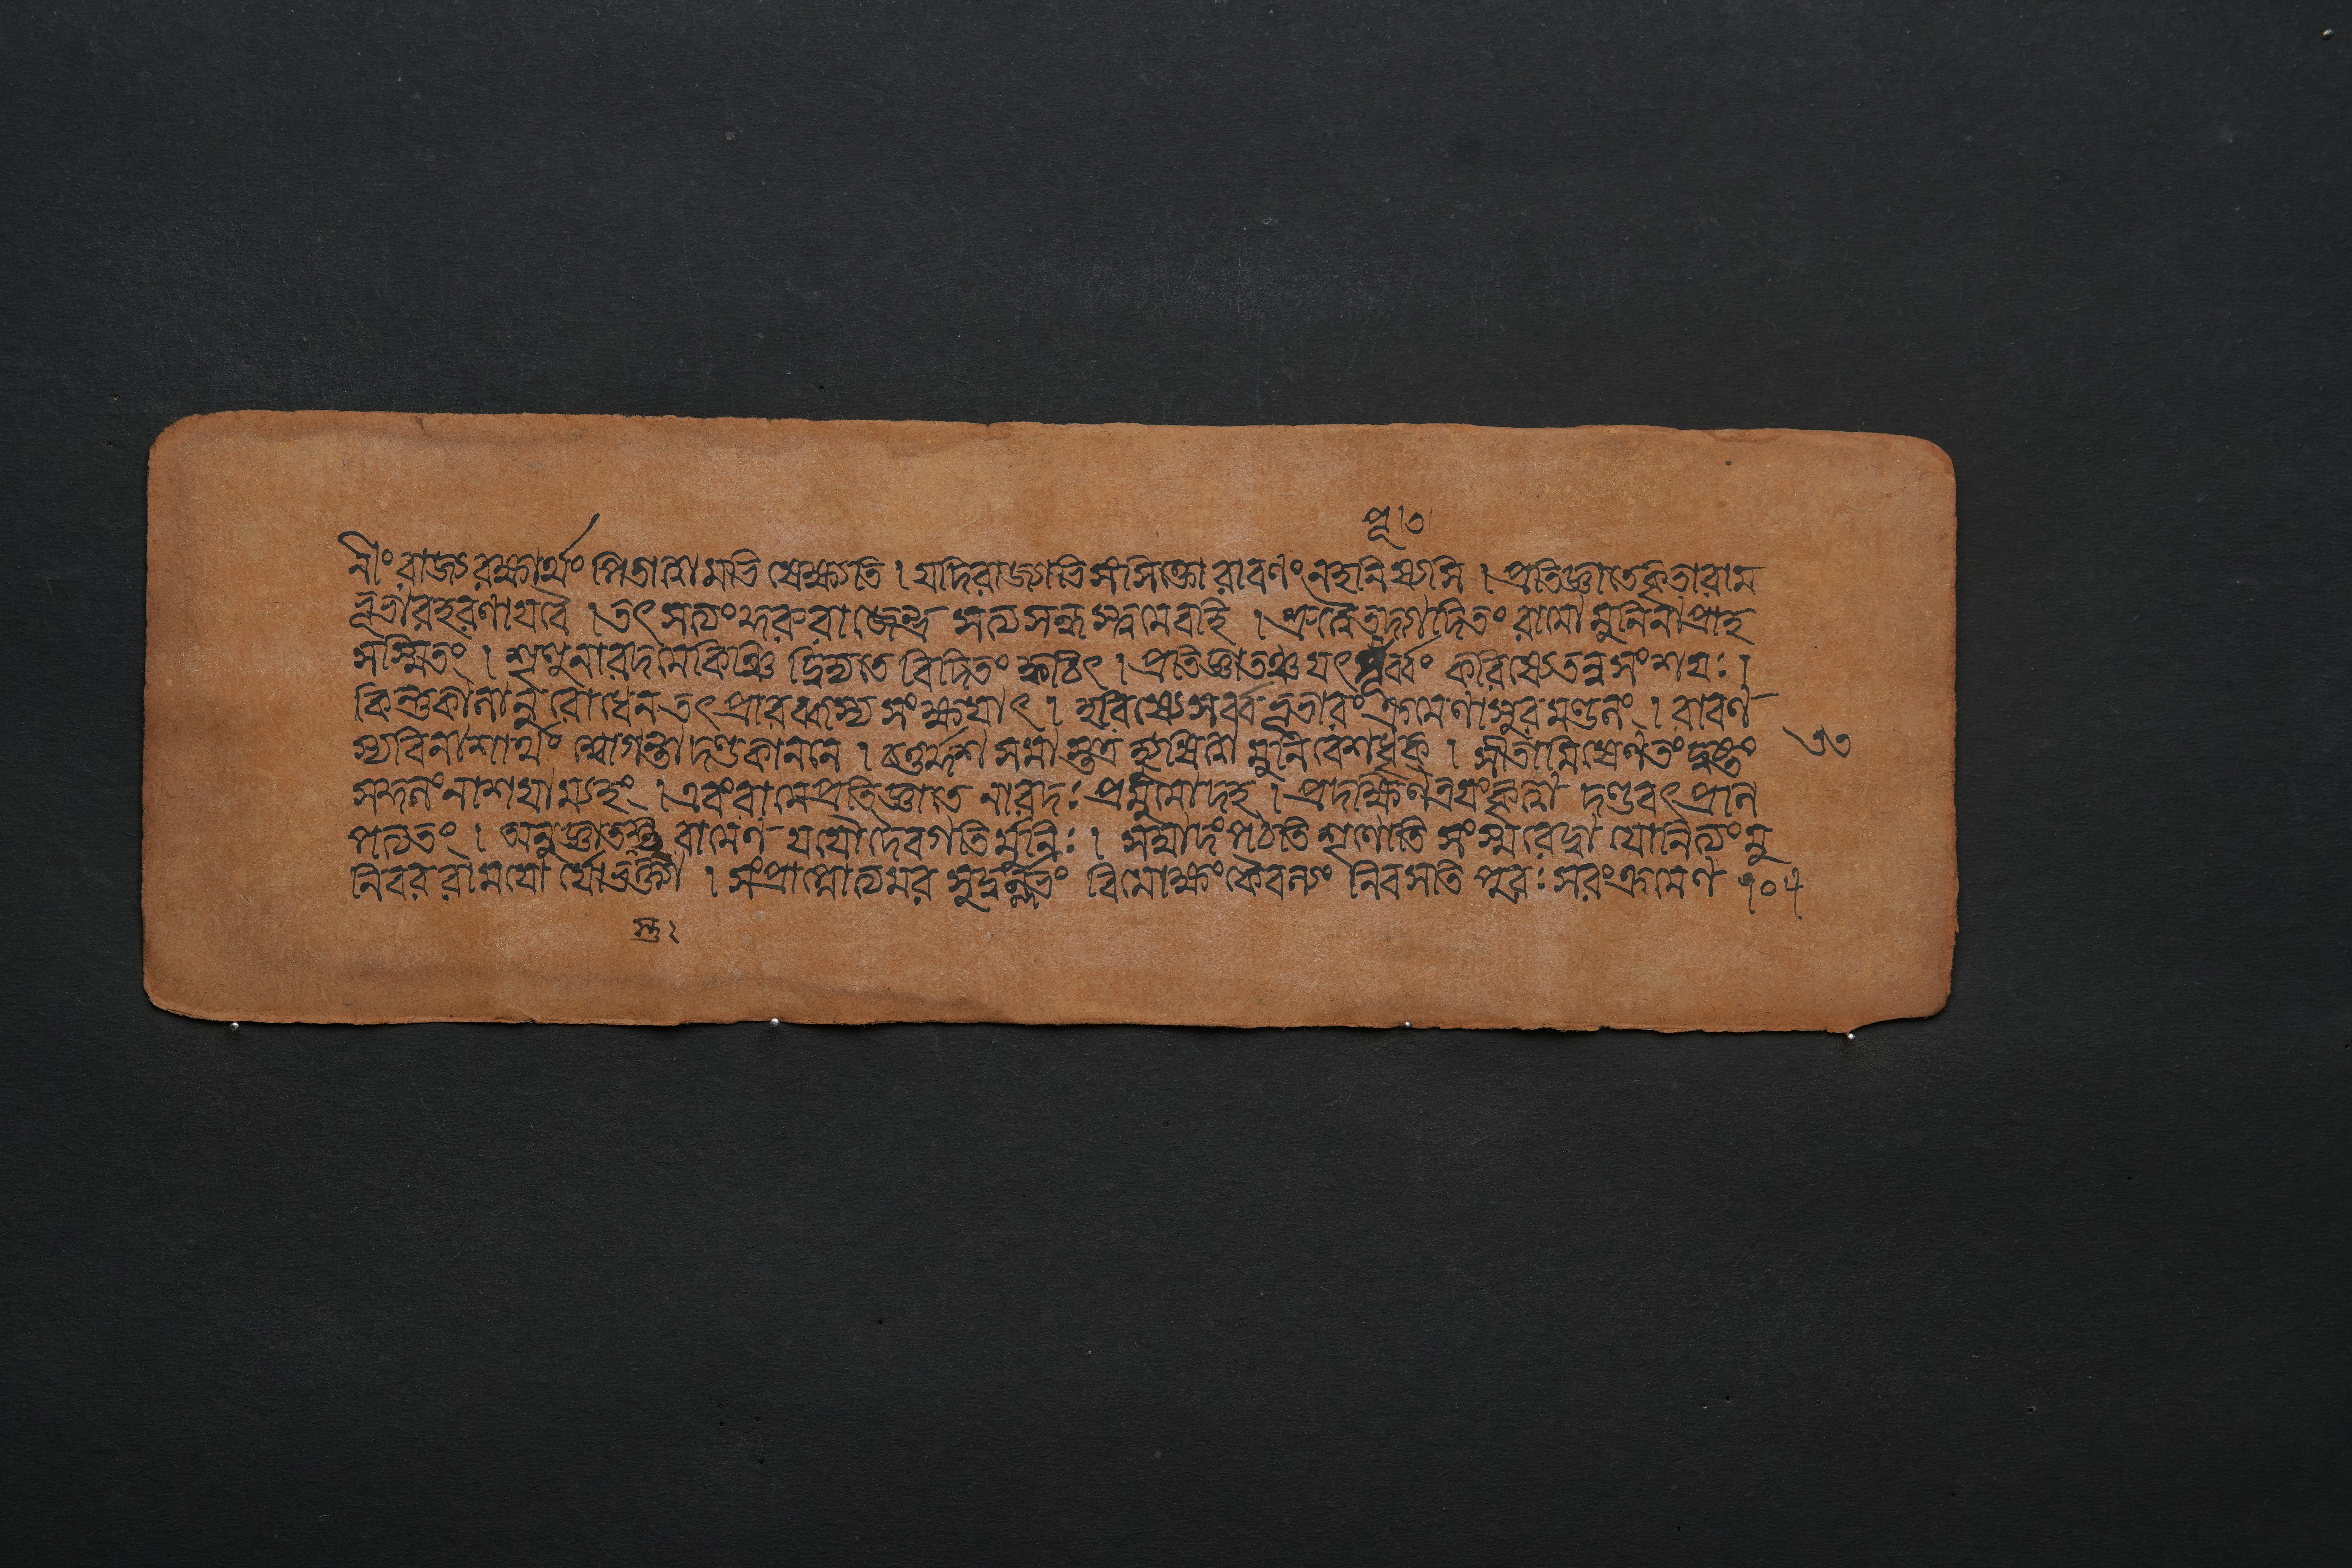 পূ ৩
নীং রাজ্যরক্ষার্থং পিতাত্বামভিষেক্ষ্যতি । যদিরাজ্যাভিসংসিক্তো রাবণংনহনিষ্যসি । প্রতিজ্ঞাতেকৃতারাম
ভূভারহরণাযবৈ । তৎ সত্যংকুরুরাজেন্দ্র সত্যসন্ধস্ত্বমেবহি । শ্রুত্বৈতদ্গদিতং রামো মুনিনাপ্রাহ
সস্মিতং । শৃণুনারদমেকিঞ্চিদ্বিদ্যতে বিদিতং ক্বচিৎ । প্রতিজ্ঞাতঞ্চযৎপূর্ব্বং করিষ্যেতন্নসংশযঃ ।
কিন্তুকালানুরোধেনতৎপ্রারব্ধস্য সংক্ষযাৎ । হরিষ্যেসর্ব্বভূভারংক্রমেণাসুরমণ্ডলং । রাবণ
স্যবিনাশার্থং শ্বোগন্তা দণ্ডকাননং । চতুর্দ্দশ সমাস্তত্র হ্যুষিত্বা মুনিবেশধৃক্ । সীতামিষেণতংদুষ্টং
সকুলংনাশযাম্যহং । এবংরামেপ্রতিজ্ঞাতে নারদঃপ্রমুমোদহ । প্রদক্ষিণত্রযংকৃত্বা দণ্ডবৎপ্রান
পত্যতং । অনুজ্ঞাতশ্চ রামেণ যযৌদেবগতিংমুনিঃ । সম্বাদংপঠতি শৃণোতি সংস্মরেদ্বা যোনিত্যংমু
নিবর রামযো র্যোভক্ত্যা । সংপ্রাপ্নোত্যমর সুদুর্ল্লভং বিমোক্ষংকৈবল্যং নিবসতি পুরঃসরংক্রমেণ
স্তু ২